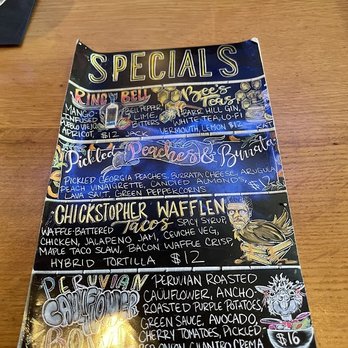 SPECIALS
RING BELL
MANGO-INFUSED
BELL PEPPER,
LIME,
BITTERS
APRICOT, $12 JACK
Bee's
Toast
FARR HILL GIN,
WHITE TEA, LO-FI
VERMOUTH, LEMON $12
Pickled Peaches & Burrata
PICKLED GEORGIA PEACHES, BURRATA CHEESE, ARUGULA
PEACH VINAIGRETTE, CANDIED ALMONDS,
LAVA SALT, GREEN PEPPERCORNS
CHICKSTOPHER WAFFLEN
Tacos SPICY SYRUP,
WAFFLE-BATTERED
CHICKEN, JALAPENO JAM, CEVICHE VEG,
MAPLE TACO SLAW, BACON WAFFLE CRISP,
HYBRID TORTILLA $12
PERUVIAN
CAULIFLOWER
PERUVIAN ROASTED
CAULIFLOWER, ANCHO
ROASTED PURPLE POTATOES,
GREEN SAUCE, AVOCADO,
CHERRY TOMATOES, PICKLED
RED ONION, CILANTRO CREMA
$16